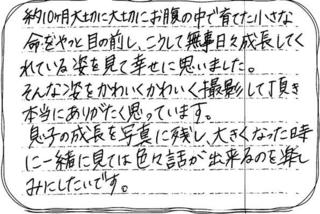 約10ヶ月大切に大切にお腹の中で育てた小さな
命をやっと目の前し、こうして無事日々成長してく
れている姿を見て幸せに思いました。
そんな姿をかわいくかわいく撮影して頂き
本当にありがたく思っています。
息子の成長を写真に残し、大きくなった時
に一緒に見ては色々話が出来るのを楽し
みにしたいです。